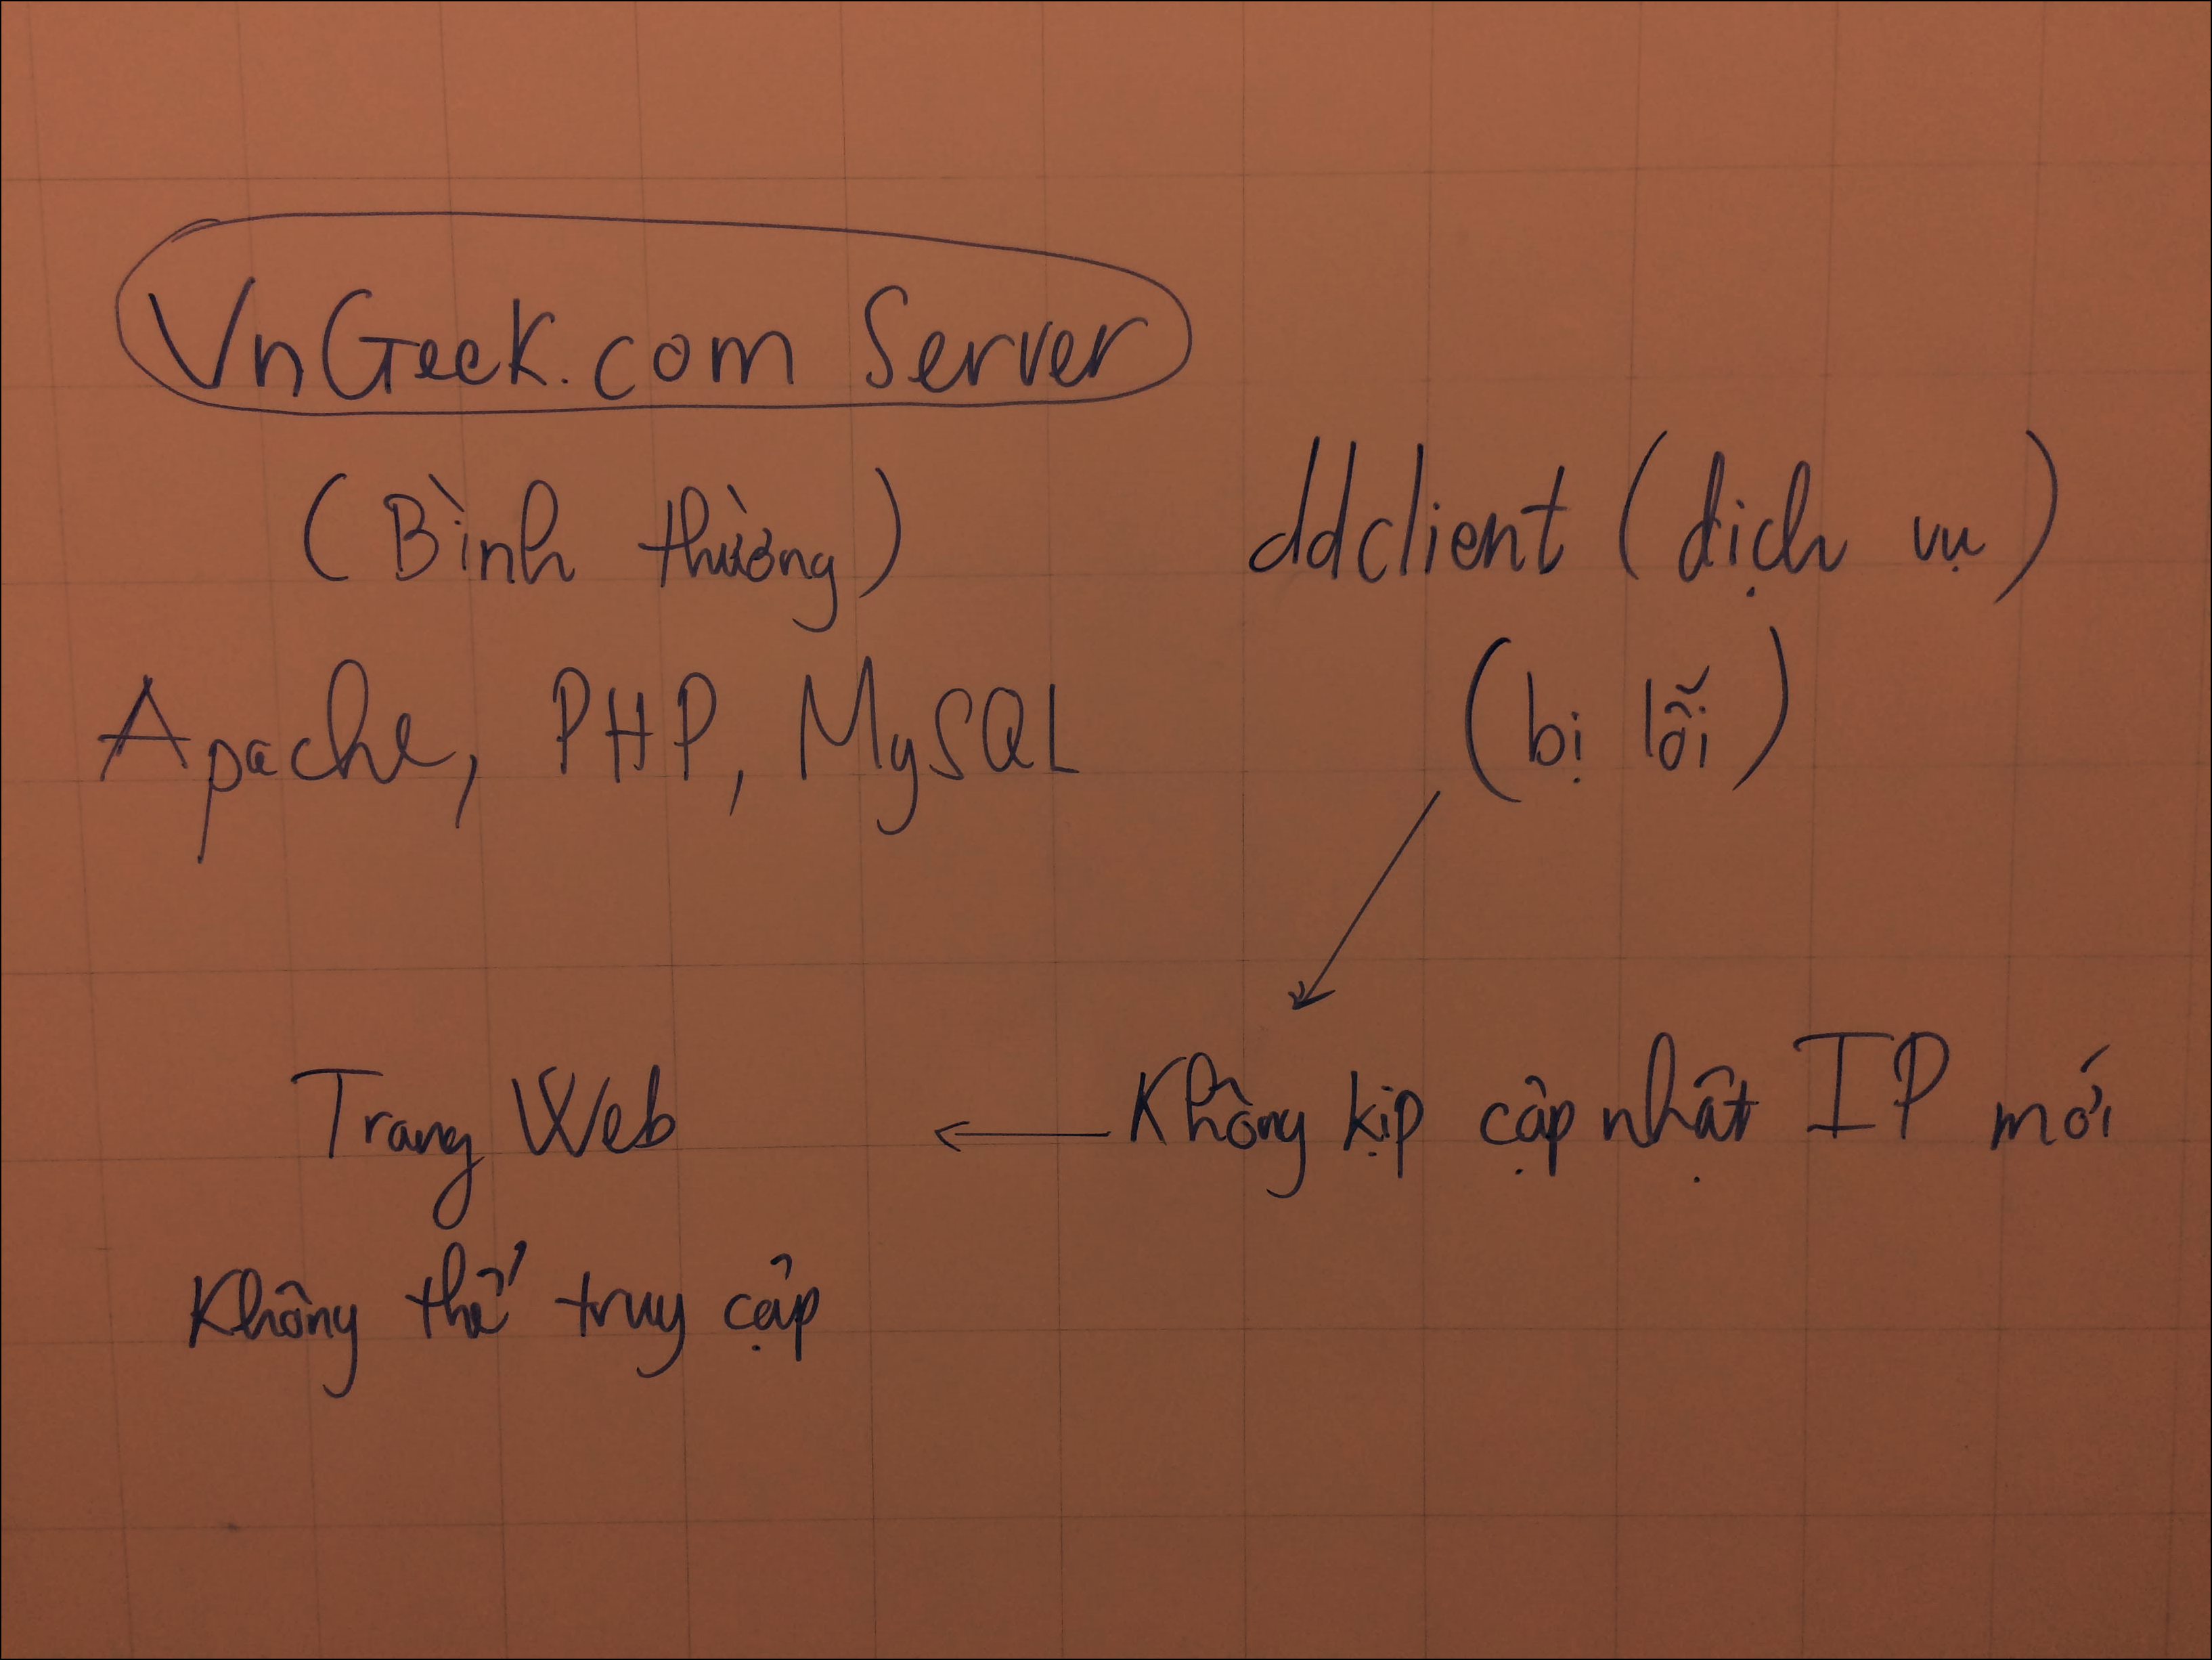 VnGeek.com Server
(Bình thường)
ddclient (dịch vụ)
Apache, PHP, MySQL
(bị lỗi)
Trang Web
Không kịp cập nhật IP mới
Không thể truy cập